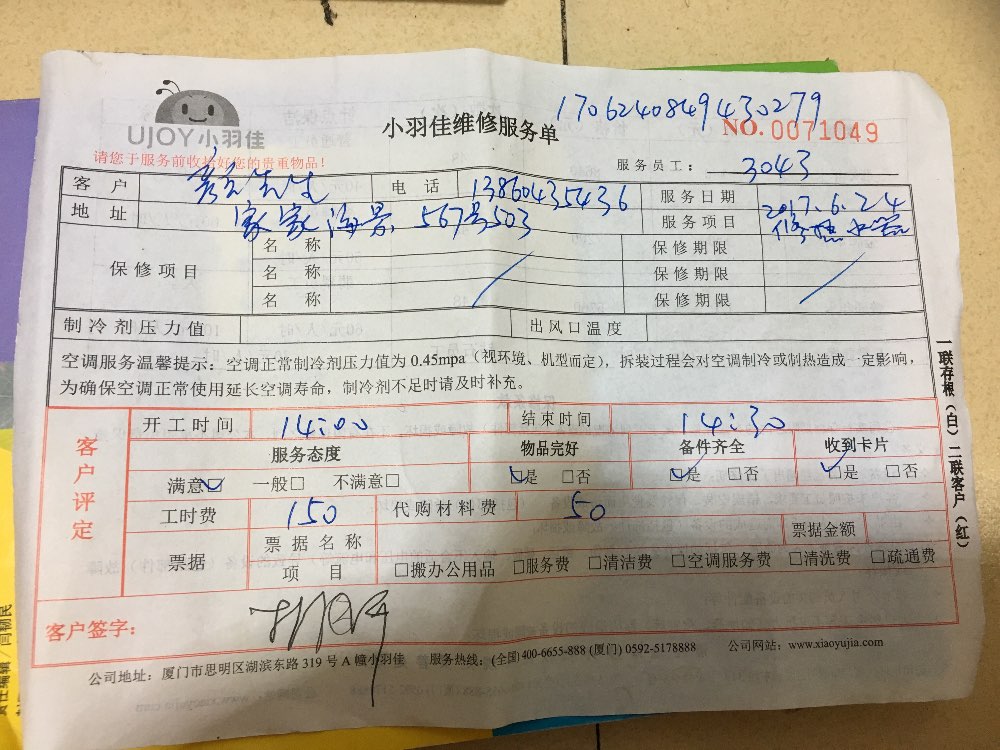 1706240849430279
UJOY小羽佳
小羽佳维修服务单
NO. 0071049
请您于服务前收拾好您的贵重物品！
服务员工： 3043
客户 先生 电话 13860435436 服务日期 2017.6.24
地址 家家海景 567号503 服务项目 修 水器
保修项目 名称 保修期限
名称 保修期限
名称 保修期限
制冷剂压力值 出风口温度
空调服务温馨提示：空调正常制冷剂压力值为0.45mpa（视环境、机型而定），拆装过程会对空调制冷或制热造成一定影响，
为确保空调正常使用延长空调寿命，制冷剂不足时请及时补充。
客户评定
开工时间 14:00 结束时间 14:30
服务态度 物品完好 备件齐全 收到卡片
满意☑ 一般□ 不满意□ ☑是 □否 ☑是 □否 ☑是 □否
工时费 150 代购材料费 50
票据 票据名称 票据金额
项目 □搬办公用品 □服务费 □清洁费 □空调服务费 □清洗费 □疏通费
客户签字：
公司地址：厦门市思明区湖滨东路319号A幢小羽佳 服务热线：(全国)400-6655-888 (厦门) 0592-5178888 公司网站：www.xiaoyujia.com
一联存根（白）二联客户（红）
责任编辑/闫韧民